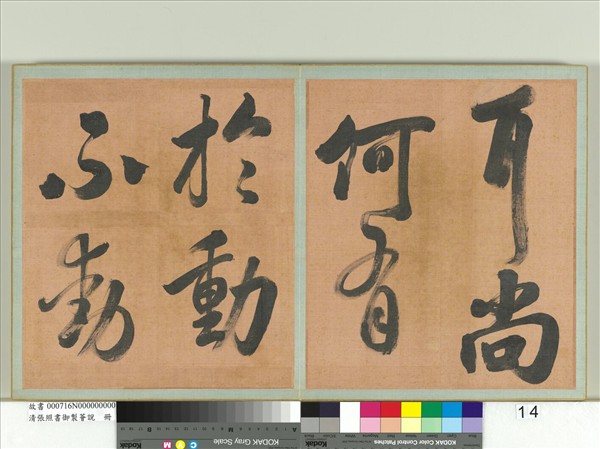 耳尚
何有
於動
不動
故書 000716N000000000
清張照書御製箸說 冊
KODAK Gray Scale
C Y M
Kodak
KODAK Color Control Patches
14